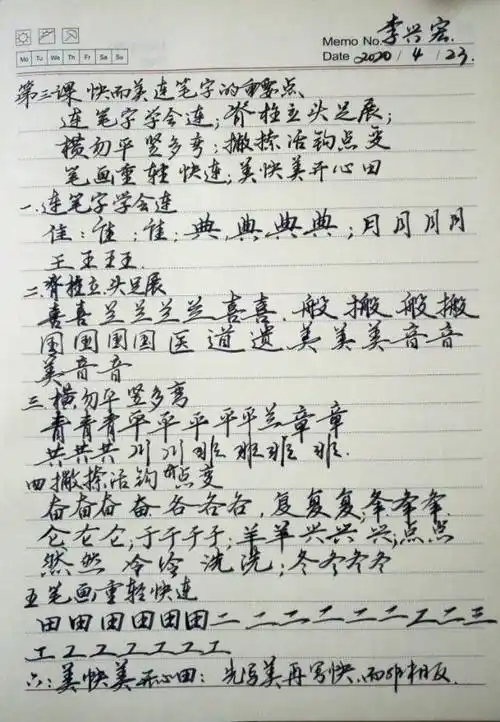 李兴宏
Memo No.
Mo Tu We Th Fr Sa Su
Date 2020 / 4 / 23.
第三课 快而美连笔字的重要点
连笔字学会连；脊柱立头足展；
横勿平竖多弯；撇捺活钩点变
笔画重轻快连；美快美开心田
一.连笔字学会连
佳：谁；谁；典典典典；月月月月
王王王王.
二.脊柱立头足展
喜喜兰兰兰兰喜喜.般搬般搬
国国国国医道遗美美美音音
美音音
三横勿平竖多弯
青青青平平平平平兰章章
共共共川川班班班班.
四撇捺活钩点变
奋奋奋奋各各各.复复复;夆夆夆.
仑仑仑;于于于于;羊羊兴兴兴;点点
然然冷冷洗洗;冬冬冬冬
五笔画重轻快连
田田田田田田二二二二二二二工二三
工工工工工工工
六：美快美开心田：先写美再写快.而非相反.